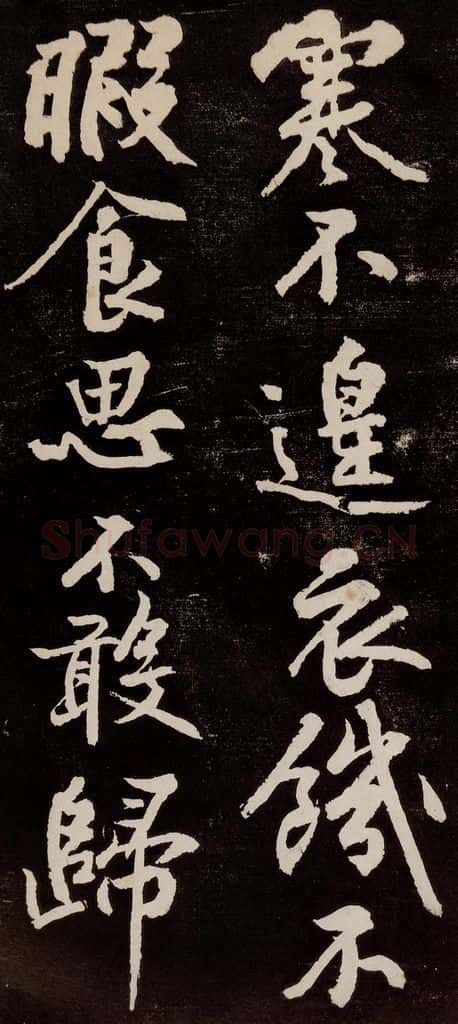 寒不遑衣饑不
暇食思不敢歸
Shufawang.CN